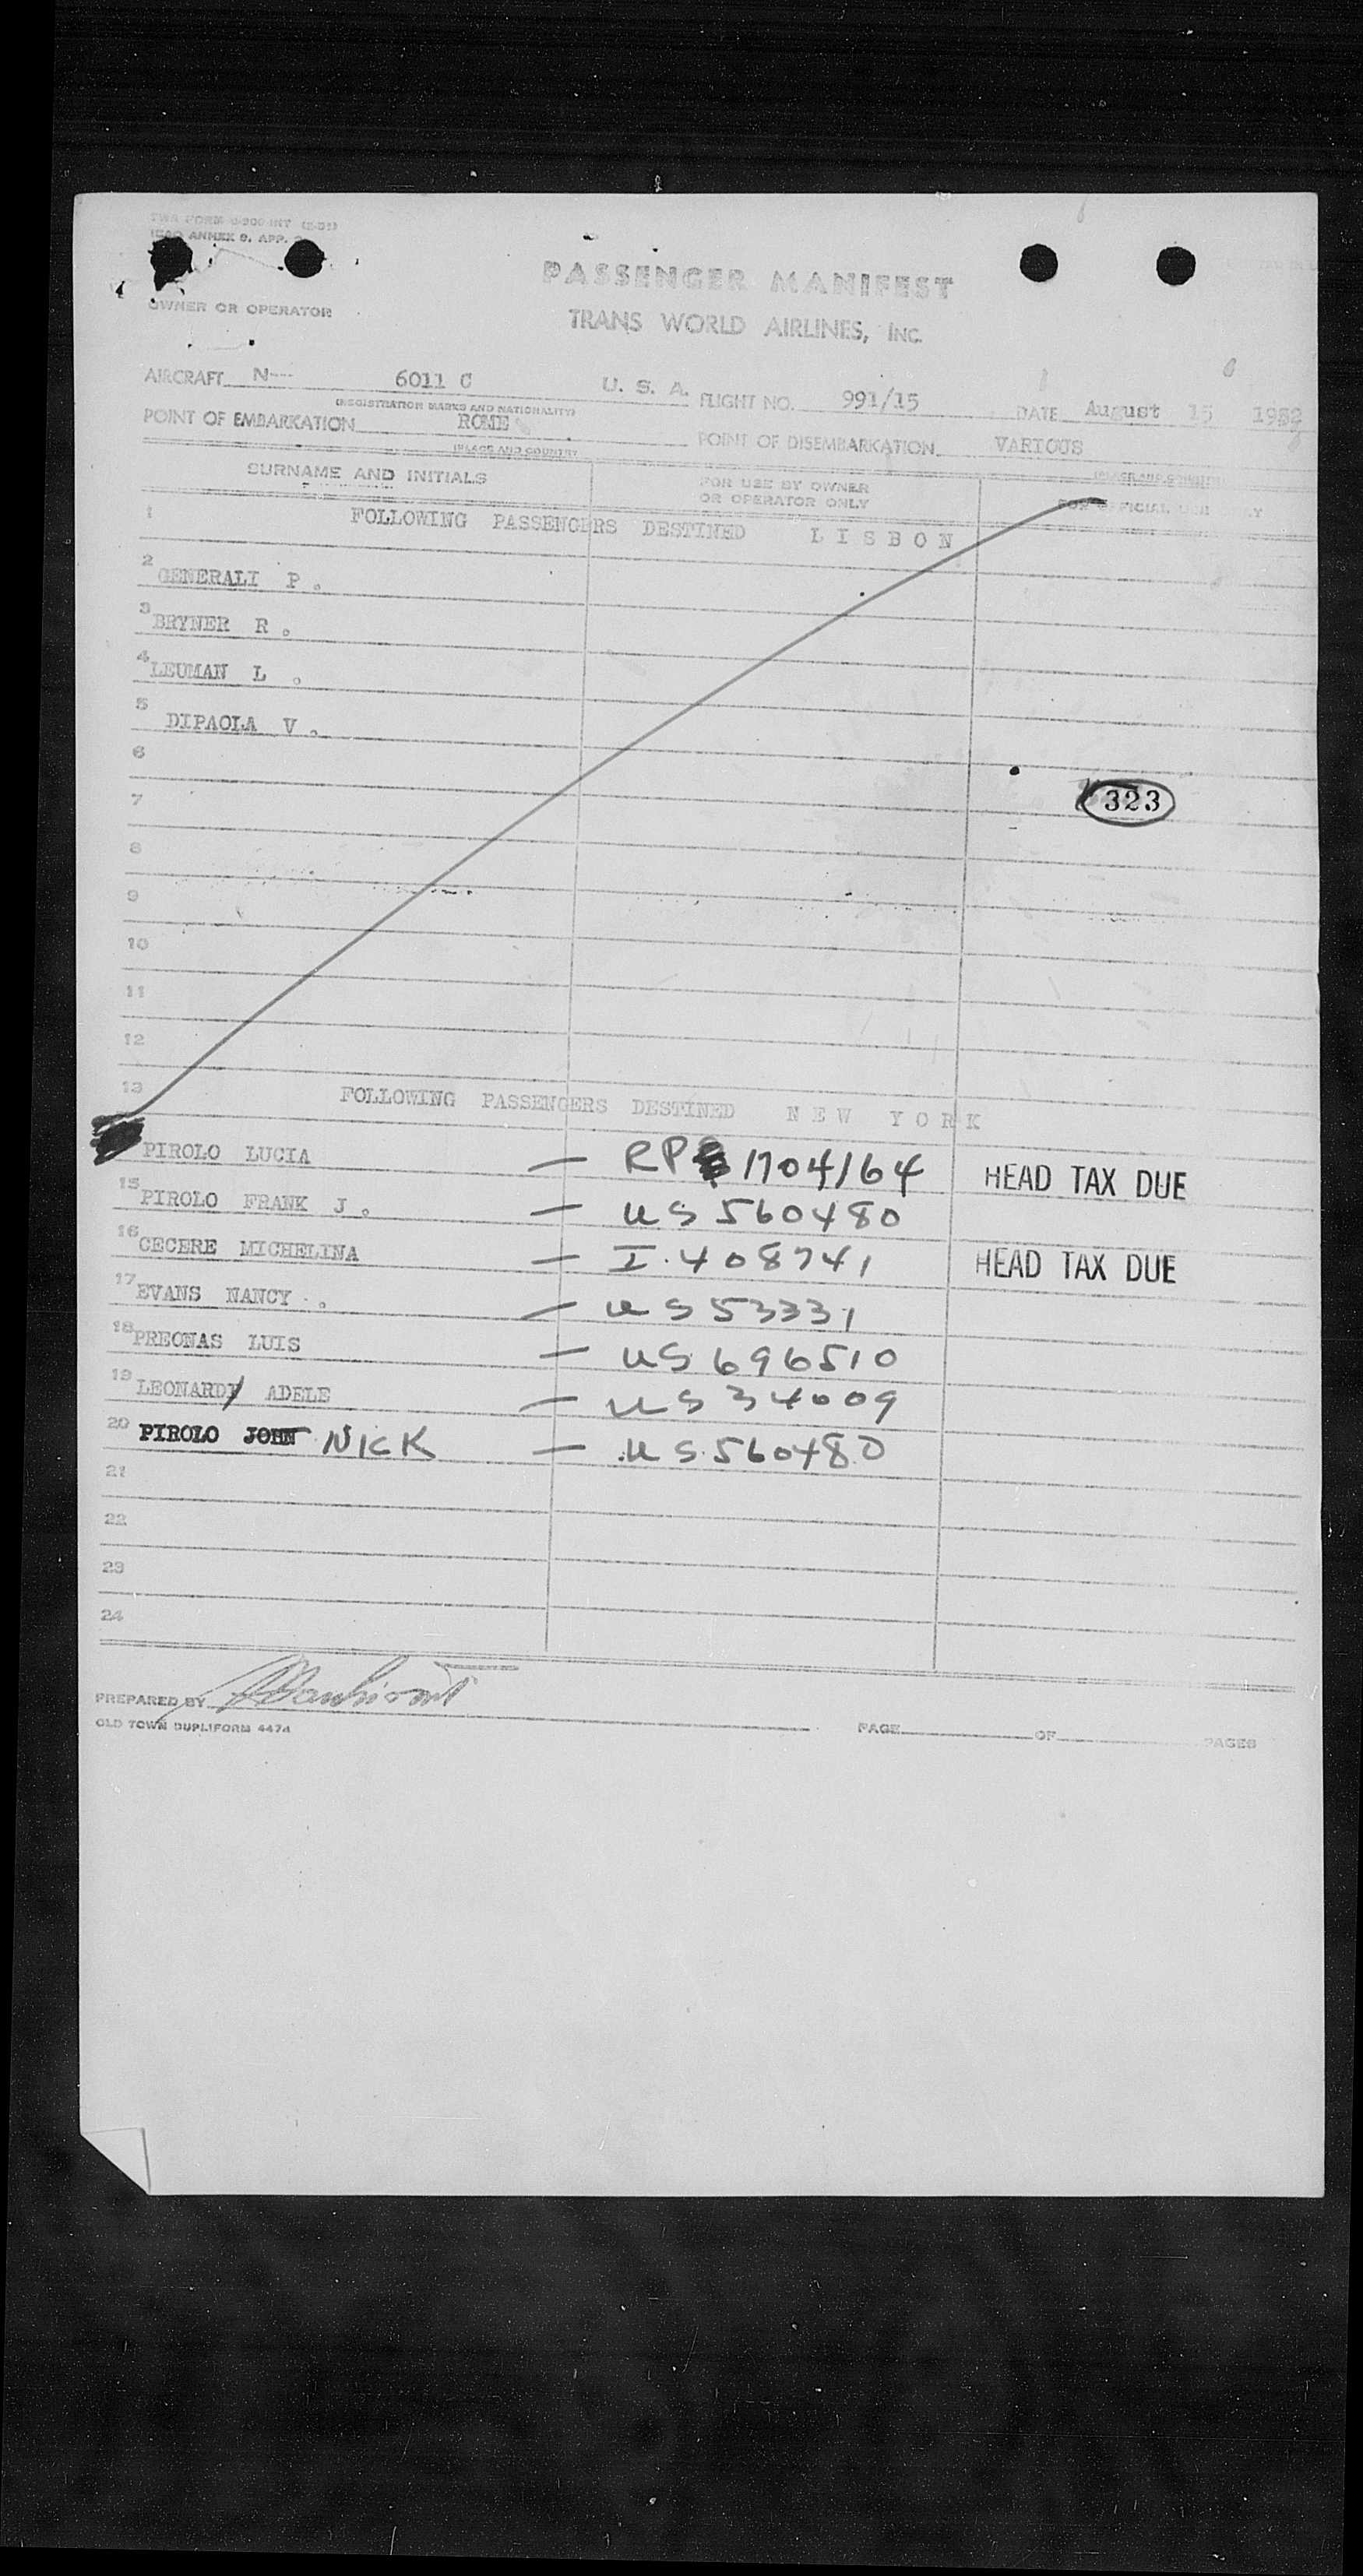 TWA FORM
ICAO ANNEX 9, APP.
PASSENGER MANIFEST
OWNER OR OPERATOR
TRANS WORLD AIRLINES, INC.
AIRCRAFT N--- 6011 C U. S. A. FLIGHT NO. 991/15 DATE August 15
(REGISTRATION MARKS AND NATIONALITY)
POINT OF EMBARKATION ROME POINT OF DISEMBARKATION VARIOUS
(PLACE AND COUNTRY)
SURNAME AND INITIALS
FOR USE BY OWNER
OR OPERATOR ONLY
1 FOLLOWING PASSENGERS DESTINED L I S B O N
2 GENERALI P.
3 BRYNER R.
4 LEUMAN L .
5 DIPAOLA V.
6
7 323
8
9
10
11
12
13 FOLLOWING PASSENGERS DESTINED N E W Y O R K
PIROLO LUCIA — RP 1704164 HEAD TAX DUE
15 PIROLO FRANK J. — US 560480
16 CECERE MICHELINA — I. 408741 HEAD TAX DUE
17 EVANS NANCY . — US 53331
18 PREONAS LUIS — US 696510
19 LEONARDY ADELE — US 34009
20 PIROLO JOHN NICK — US 560480
21
22
23
24
PREPARED BY
OLD TOWN DUPLIFORM 4474 PAGE OF PAGES